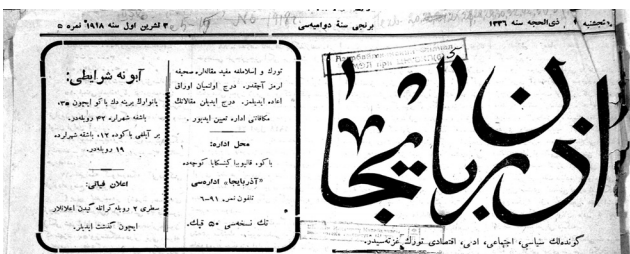 پنجشنبه ذی‌الحجه سنه ١٣٣٦
برنجی سنهٔ دوامیه‌سی
٣ تشرین اول سنه ١٩١٨ نمره ٥
آذربایجان
كونده‌لك سیاسی، اجتماعی، ادبی، اقتصادی تورك غزته‌سیدر.
تورك و اسلاملغه مفید مقاله‌لره صحیفه
لرمز آچقدر. درج اولنمیان اوراق
اعاده ایدیلمز. درج ایدیلن مقالاتك
مكافاتی اداره تعیین ایدیور.
محل اداره:
باكو،
«آذربایجان» اداره‌سی
تلفون نمره. ٩١–٦
تك نسخه‌سی ٥٠ قپك.
آبونه شرایطی:
یانوارك برینه دك باكو ایچون ٣٥،
باشقه شهرلره ٤٢ روبله‌در.
بر آیلغی باكوده ١٢، باشقه شهرلرده
١٩ روبله‌در.
اعلان فیأتی:
سطری ٢ روبله كرانله كیدن اعلانلار
ایچون كذشت ایدیلر.